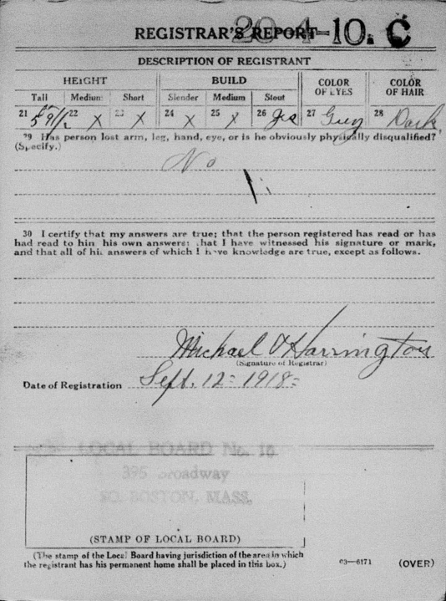 REGISTRAR'S REPORT 20-4-10. C
DESCRIPTION OF REGISTRANT
HEIGHT BUILD COLOR OF EYES COLOR OF HAIR
Tall Medium Short Slender Medium Stout
21 5 9 1/2 22 X 23 X 24 X 25 X 26 Yes 27 Grey 28 Dark
29 Has person lost arm, leg, hand, eye, or is he obviously physically disqualified?
(Specify.)
No
30 I certify that my answers are true; that the person registered has read or has
had read to him his own answers; that I have witnessed his signature or mark,
and that all of his answers of which I have knowledge are true, except as follows.
Michael Harrington
(Signature of Registrar)
Date of Registration Sept. 12 - 1918 -
LOCAL BOARD No. 10
395 Broadway
SO. BOSTON, MASS.
(STAMP OF LOCAL BOARD)
(The stamp of the Local Board having jurisdiction of the area in which
the registrant has his permanent home shall be placed in this box.)
03—6171 (OVER)